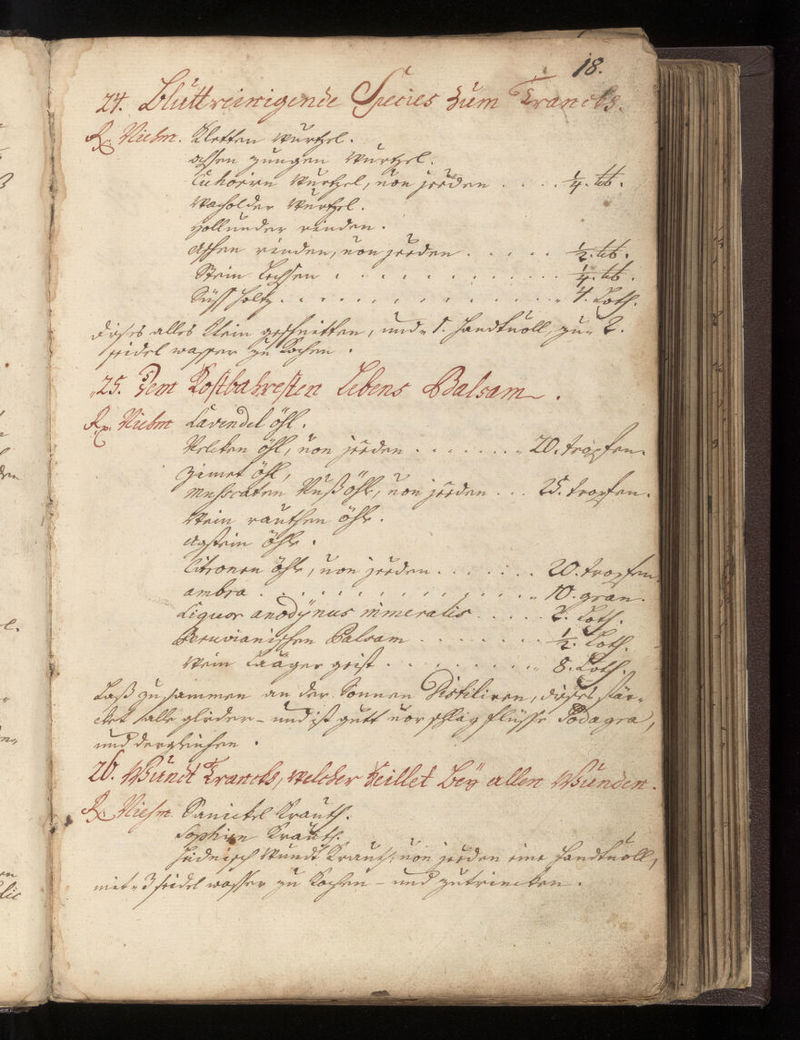 18.
24. Bluttreinigende Species zum Trancks.
Rx. Niehm. Kletten Wurtzel.
Ossen zungen Wurtzel.
Cichorien Wurtzel, von jeden .... ¼ ℔.
Wacholder Wurtzel.
Hollunder rinden.
Aschen rinden, von jeden ..... ½ ℔.
Stein ............ ¼ ℔.
Süsß holtz .............. 4. Loth.
dieses alles Klein geschnitten, und 1. handtvoll, zu 2.
seidel wasser zu Kochen.
25. Dem Kostbahresten Lebens Balsam.
Rx. Niehm Lavendel öhl.
Nelcken öhl, von jeden ....... 20. tropfen.
Zimet öhl,
Muscaten Nuß öhl, von jeden ... 25. tropfen.
Wein rauthen öhl.
Agstein öhl.
Citronen öhl, von jeden ....... 20. tropfen.
ambra .............. 10. gran.
Liquor anodÿnus mineralis ..... 2. Loth.
Peruvianischen Balsam ....... ½. Loth.
Wein Lääger geist ......... 8. Loth.
Laß zusammen an der Sonnen Distiliren, dieses stär-
cket alle glider - und ist gutt vor schlag flüsse Podagra,
und dergleichen.
26. Wundt Trancks, welcher heillet beÿ allen Wunden.
Rx. Niehm. Sanickel Krauth.
Sophien Krauth.
Heidnisch Wundt Krauth, von jeden eine handtvoll,
mit 3 seidel wasser zu Kochen - und zutrincken.